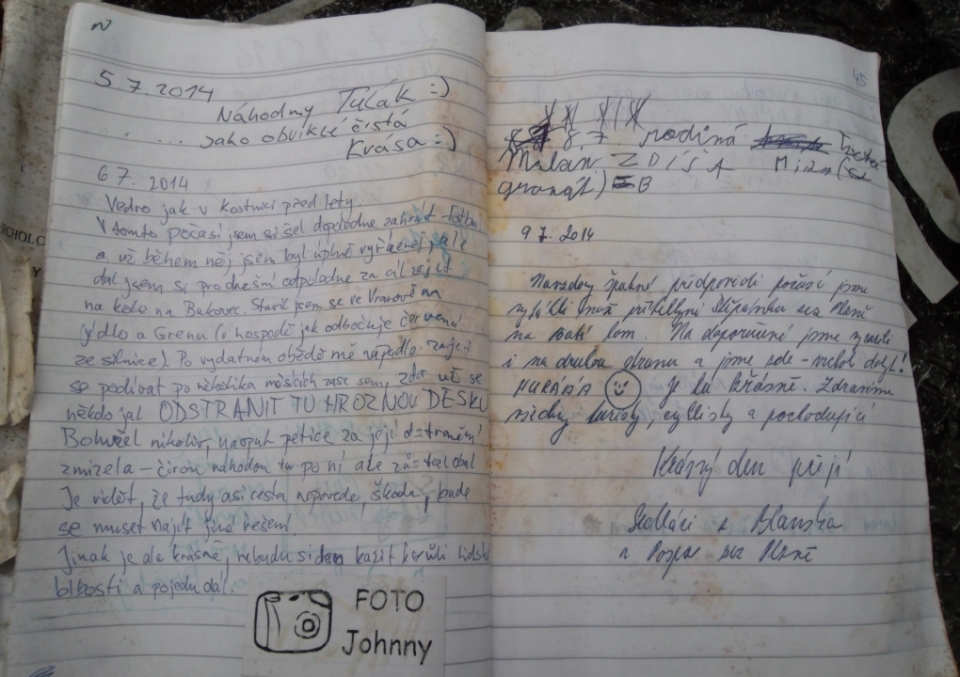 5.7.2014
Náhodný Tulák :)
.... jako obviklé čistá
Krása :)
6 7. 2014
Vedro jak v kostnici před lety.
V tomto počasí jsem si šel dopoledne zahrát fotbal
a už během něj jsem byl úplně vyřízenej, ale
dal jsem si pro dnešní odpoledne za cíl zajet
na kole na Bukovec. Stavil jsem se ve Vranově na
jídlo a Grenu (v hospodě jak odbočuje červená
ze silnice). Po vydatném obědě mě napadlo zajet
se podívat po několika měsících zase sem, zda už se
někdo jal ODSTRANIT TU HROZNOU DESKU
Bohužel nikoliv, naopak petice za její odstranění
zmizela - čirou náhodou tu po ní ale zůstal obal
Je vidět, že tudy asi cesta nepovede, škoda, bude
se muset najít jiné řešení
Jinak je ale krásně, nebudu si den kazit kvůli lidské
blbosti a pojedu dál.
FOTO
Johnny
45
8.7. rodiná
Milan Z DISA
granát) B
9 7. 2014
Navzdory špatné předpovědi počasí jsme
na Babí lom. Na doporučení jsme
i na druhou stranu a jsme zde -
HURÁÁÁ je tu krásně. Zdravíme
všechny turisty, cyklisty a pochodující
Krásný den přejí
Sedláci z Blanska